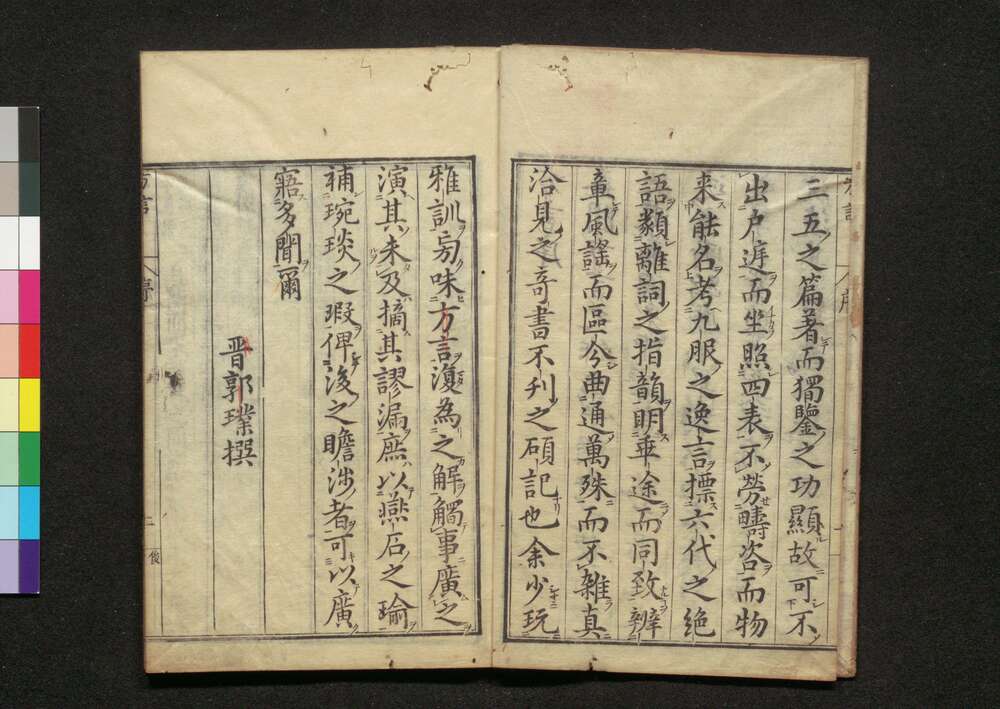 三五之篇著而獨鑒之功顯故可不
出户庭而坐照四表不勞疇咨而物
来能名考九服之逸言摽六代之絶
語類離詞之指韻明乖途而同致辨
章風謡而區分曲通萬殊而不雜真
洽見之奇書不刋之碩記也余少玩
雅訓旁味方言復為之解觸事廣之
演其未及摘其謬漏庶以燕石之瑜
補琬琰之瑕俾後之瞻涉者可以廣
寤多聞爾
晋郭璞撰
方言
序